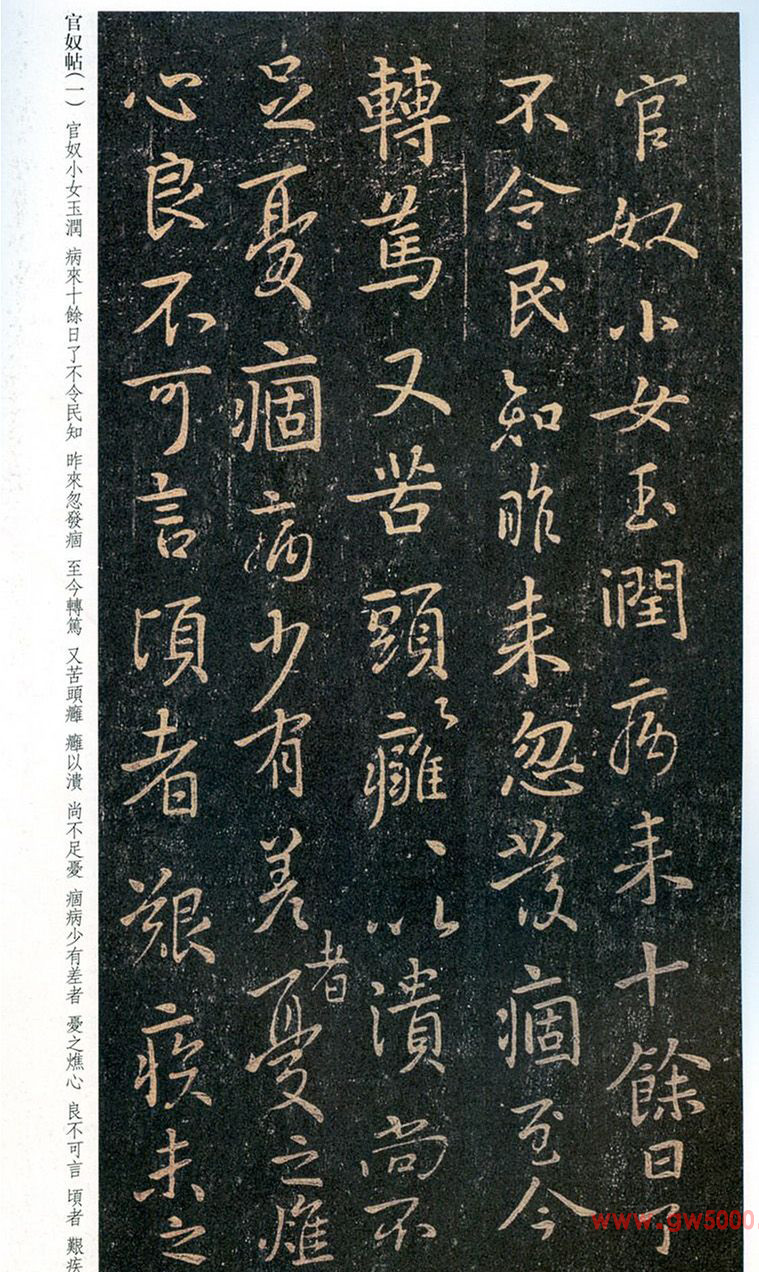 官奴小女玉潤病来十餘日了
不令民知昨来忽發痼至今
轉篤又苦頭癰、以潰尚不
足憂痼病少有差者憂之燋
心良不可言頃者艱疾未之
官奴帖（一） 官奴小女玉潤 病來十餘日了不令民知 昨來忽發痼 至今轉篤 又苦頭癰 癰以潰 尚不足憂 痼病少有差者 憂之燋心 良不可言 頃者 艱疾
www.gw5000.